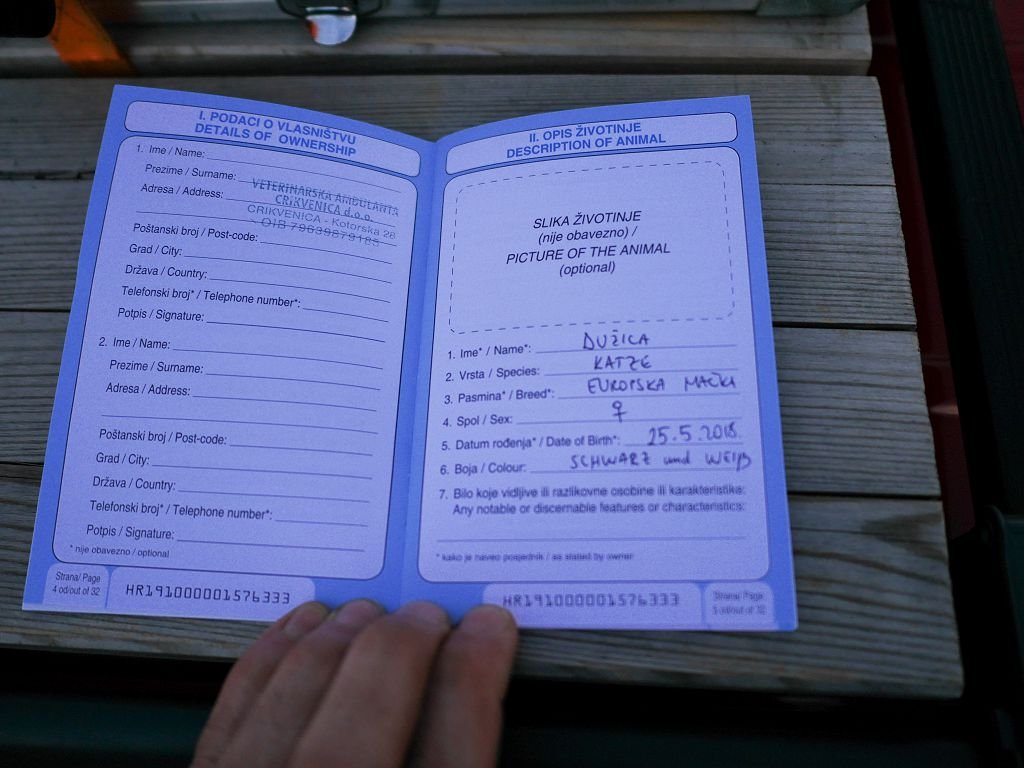 I. PODACI O VLASNIŠTVU
DETAILS OF OWNERSHIP
1. Ime / Name:
Prezime / Surname:
Adresa / Address:
VETERINARSKA AMBULANTA
CRIKVENICA d.o.o.
CRIKVENICA - Kotorska 28
Poštanski broj / Post-code:
Grad / City:
Država / Country:
Telefonski broj* / Telephone number*:
Potpis / Signature:
2. Ime / Name:
Prezime / Surname:
Adresa / Address:
Poštanski broj / Post-code:
Grad / City:
Država / Country:
Telefonski broj* / Telephone number*:
Potpis / Signature:
* nije obavezno / optional
Strana/ Page
4 od/out of 32
HR191000001576333
II. OPIS ŽIVOTINJE
DESCRIPTION OF ANIMAL
SLIKA ŽIVOTINJE
(nije obavezno) /
PICTURE OF THE ANIMAL
(optional)
1. Ime* / Name*: DUŽICA
2. Vrsta / Species: KATZE
3. Pasmina* / Breed*: EUROPSKA MAČKA
4. Spol / Sex: ♀
5. Datum rođenja* / Date of Birth*: 25.5.2018.
6. Boja / Colour: SCHWARZ und WEIß
7. Bilo koje vidljive ili razlikovne osobine ili karakteristike:
Any notable or discernable features or characteristics:
* kako je naveo posjednik / as stated by owner
HR191000001576333
Strana/ Page
5 od/out of 32